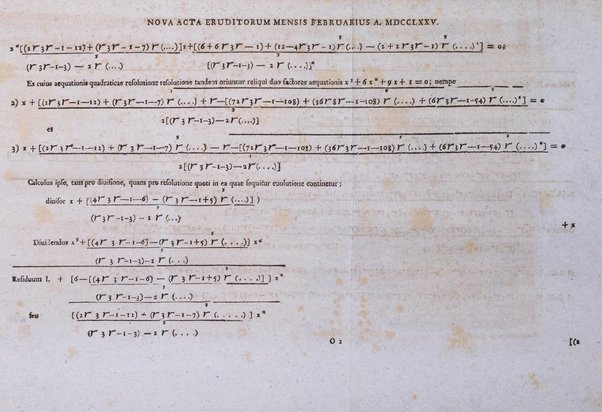 NOVA ACTA ERUDITORUM MENSIS FEBRUARIUS A. MDCCLXXV.
x² [(2r 3r—1—12)+(r3r—1—7) r (....)]x+[(6+6r3r—1)+(12—4r3r—1) r (...) — (2+2r3r—1) r (....)²] = 0;
(r3r—1—3) — 2 r (....) [(r3r—1—3)—2 r (....)]²
Ex cuius aequationis quadraticae resolutione resolutione tandem oriuntur reliqui duo factores aequationis x³+6x²+9x+1=0; nempe
2) x + [(2r3r—1—12) + (r3r—1—7) r (....) + r—[(72r3r—1—108) + (36r8r—1—108) r (....) + (6r3r—1—54) r (....)²] = 0
2[(r3r—1—3)—2r(....)]
et
3) x + [(2r3r—1—12) + (r3r—1—7) r (....) — r—[(72r3r—1—108) + (36r3r—1—108) r (....) + (6r3r—1—54) r (....)²] = 0
2[(r3r—1—3)—2r(....)]
Calculus ipse, tam pro diuisione, quam pro resolutione quoti in ea quae sequitur euolutione continetur:
diuisor x + [(4r3r—1—6) — (r3r—1+5) r (....)] )
(r3r—1—3) — 2 r (....)
+ x
Diuidendus x³+[(4r3r—1—6)—(r3r—1+5) r (....)] x²
(r3r—1—3)—2 r (....)
Residuum I. + [6—[(4r3r—1—6) — (r3r—1+5) r (....)] ] x²
(r3r—1—3)—2 r (....)
seu [(2r3r—1—12) + (r3r—1—7) r (.....)] x²
(r3r—1—3) — 2r (....)
O 2 [(2